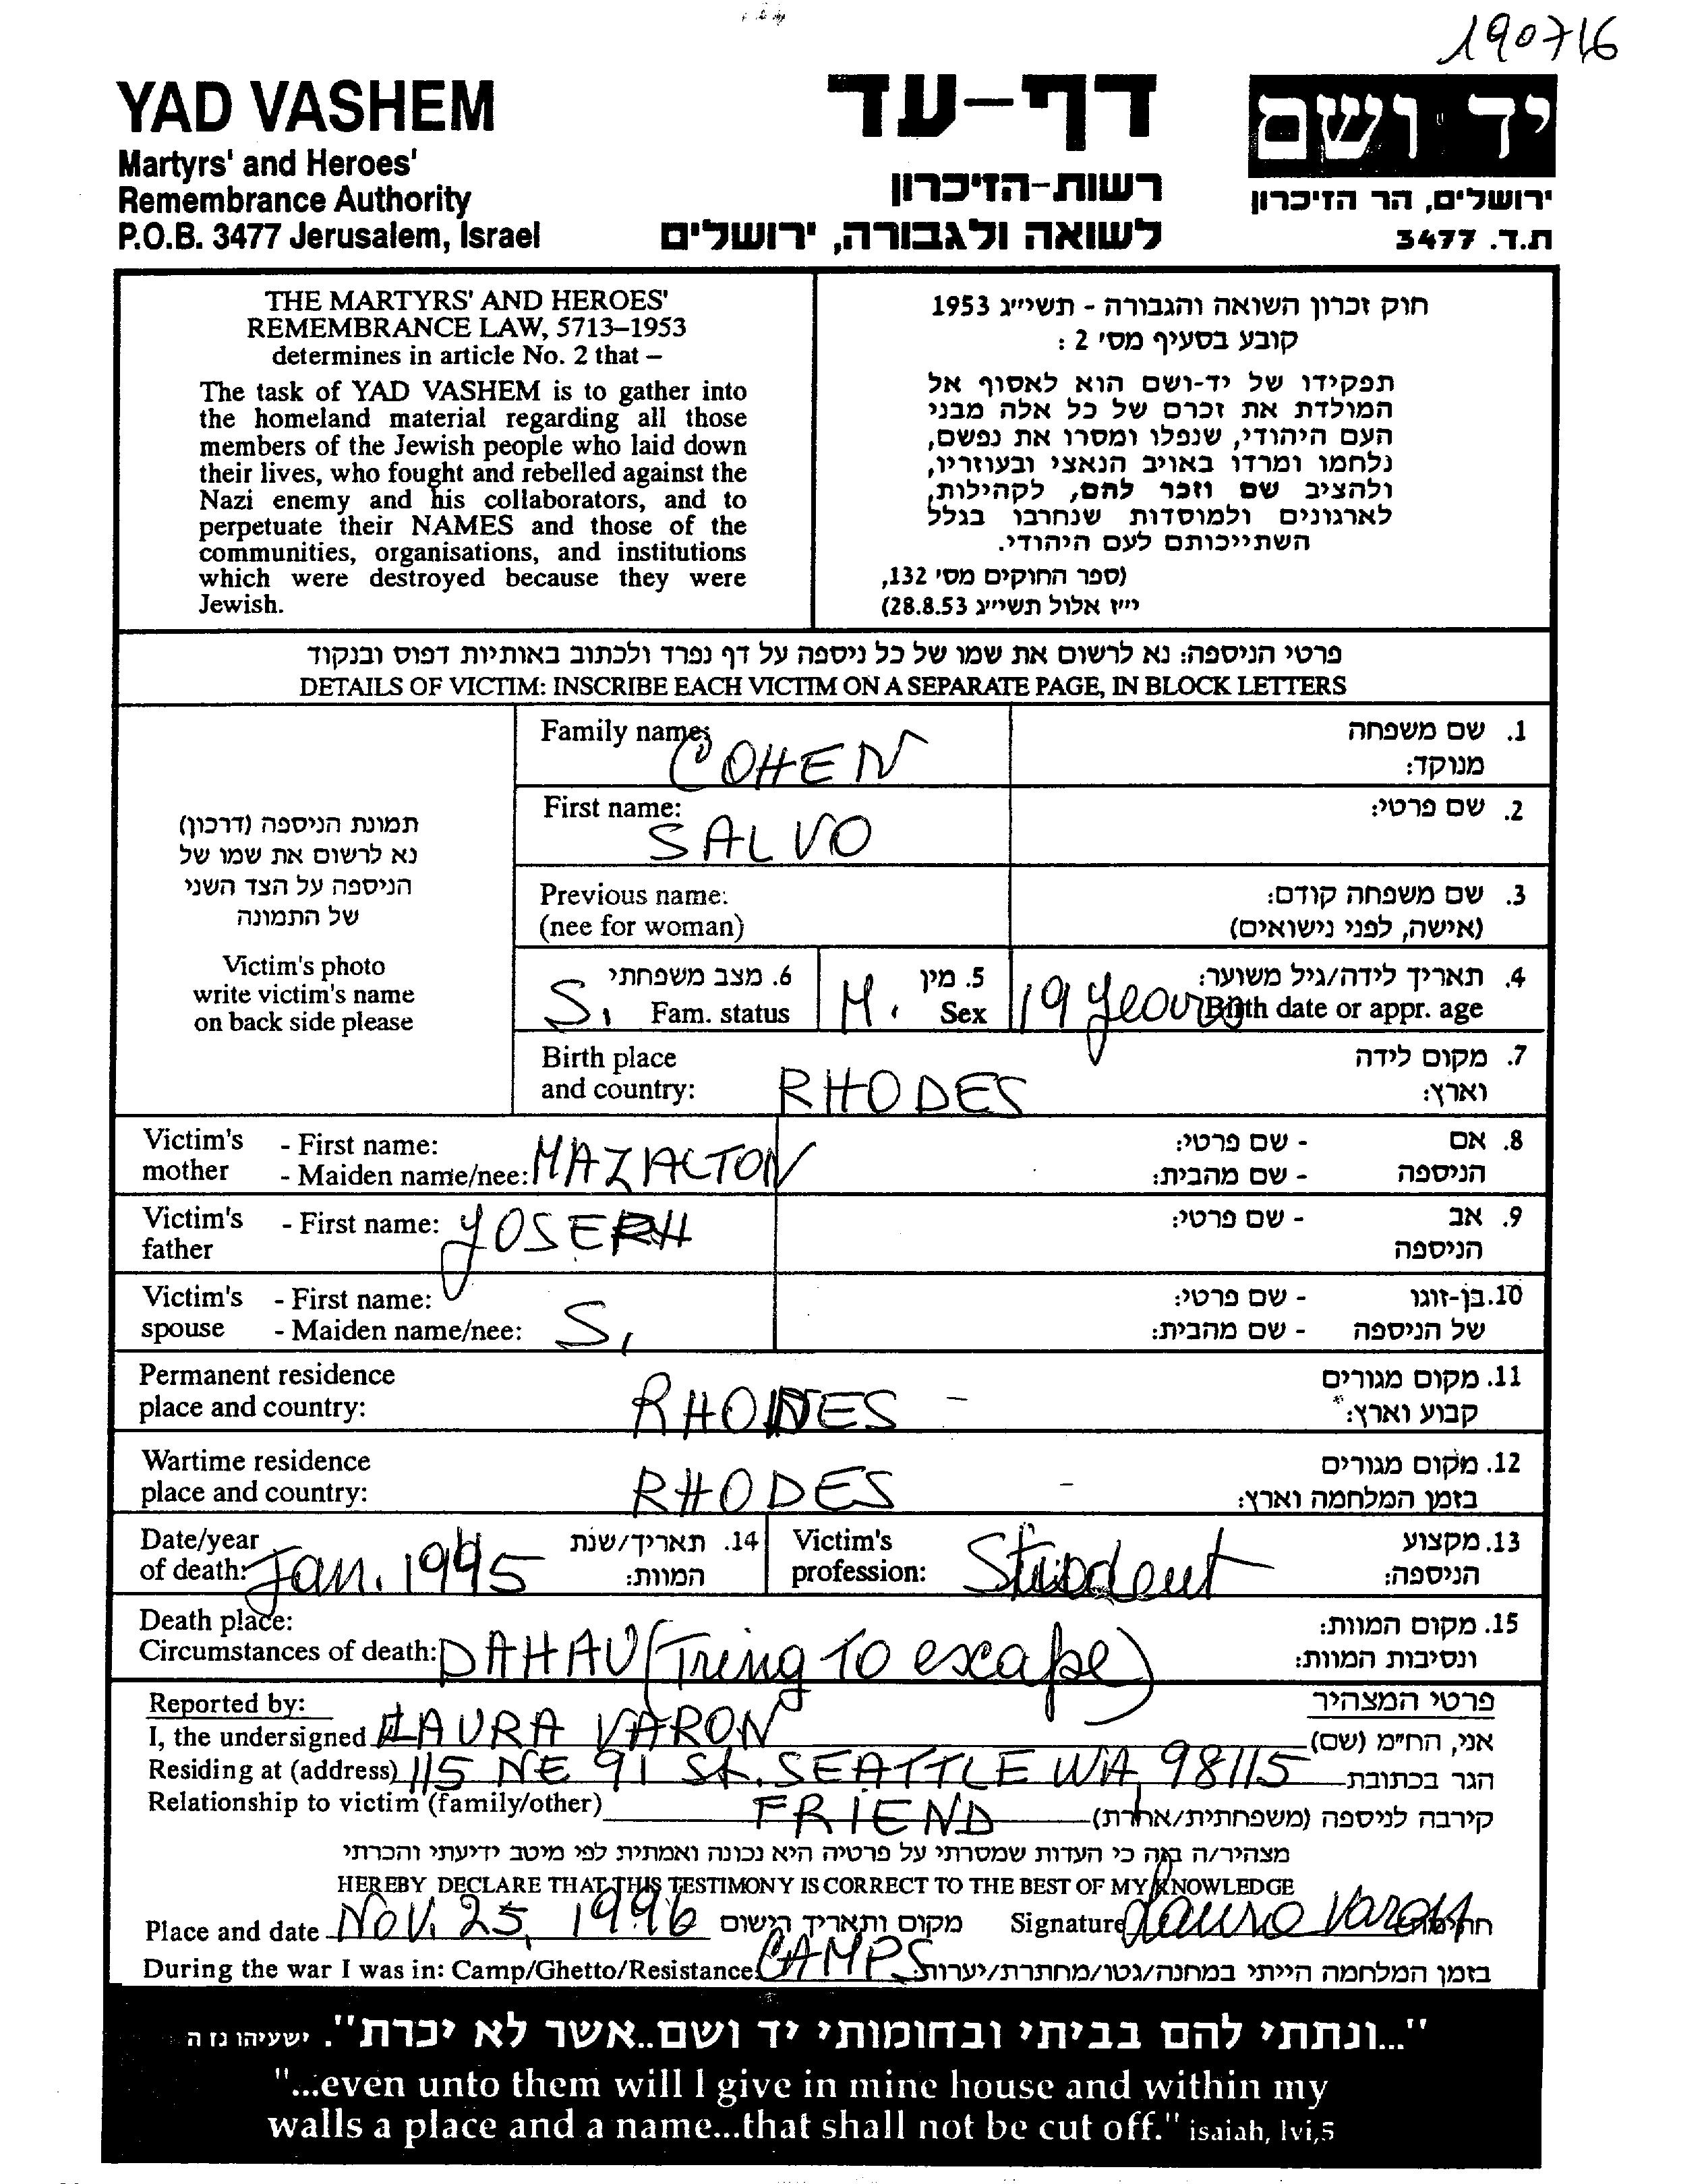 190716
YAD VASHEM
Martyrs' and Heroes'
Remembrance Authority
P.O.B. 3477 Jerusalem, Israel
דף-עד
רשות-הזיכרון
לשואה ולגבורה, ירושלים
יד ושם
ירושלים, הר הזיכרון
ת.ד. 3477
THE MARTYRS' AND HEROES'
REMEMBRANCE LAW, 5713–1953
determines in article No. 2 that –
The task of YAD VASHEM is to gather into
the homeland material regarding all those
members of the Jewish people who laid down
their lives, who fought and rebelled against the
Nazi enemy and his collaborators, and to
perpetuate their NAMES and those of the
communities, organisations, and institutions
which were destroyed because they were
Jewish.
חוק זכרון השואה והגבורה - תשי״ג 1953
קובע בסעיף מס' 2 :
תפקידו של יד-ושם הוא לאסוף אל
המולדת את זכרם של כל אלה מבני
העם היהודי, שנפלו ומסרו את נפשם,
נלחמו ומרדו באויב הנאצי ובעוזריו,
ולהציב שם וזכר להם, לקהילות,
לארגונים ולמוסדות שנחרבו בגלל
השתייכותם לעם היהודי.
(ספר החוקים מס' 132,
י״ז אלול תשי״ג 28.8.53)
פרטי הניספה: נא לרשום את שמו של כל ניספה על דף נפרד ולכתוב באותיות דפוס ובנקוד
DETAILS OF VICTIM: INSCRIBE EACH VICTIM ON A SEPARATE PAGE, IN BLOCK LETTERS
תמונת הניספה (דרכון)
נא לרשום את שמו של
הניספה על הצד השני
של התמונה
Victim's photo
write victim's name
on back side please
Family name: COHEN
1. שם משפחה
מנוקד:
First name: SALVO
2. שם פרטי:
Previous name:
(nee for woman)
3. שם משפחה קודם:
(אישה, לפני נישואים)
S. 6. מצב משפחתי
Fam. status
M. 5. מין
Sex
19 years 4. תאריך לידה/גיל משוער:
Birth date or appr. age
Birth place
and country: RHODES
7. מקום לידה
וארץ:
Victim's mother - First name:
- Maiden name/nee: MAZALTON
8. אם הניספה - שם פרטי:
- שם מהבית:
Victim's father - First name: YOSEPH
9. אב הניספה - שם פרטי:
Victim's spouse - First name:
- Maiden name/nee: S.
10. בן-זוגו של הניספה - שם פרטי:
- שם מהבית:
Permanent residence
place and country: RHODES -
11. מקום מגורים
קבוע וארץ:
Wartime residence
place and country: RHODES -
12. מקום מגורים
בזמן המלחמה וארץ:
Date/year
of death: Jan. 1945
14. תאריך/שנת
המוות:
Victim's
profession: Student
13. מקצוע
הניספה:
Death place:
Circumstances of death: DAHAU (Tring To escape)
15. מקום המוות:
ונסיבות המוות:
Reported by:
פרטי המצהיר
I, the undersigned LAURA VARON אני, הח״מ (שם)
Residing at (address) 115 NE 91 St. SEATTLE WA, 98115 הגר בכתובת
Relationship to victim (family/other) FRIEND קירבה לניספה (משפחתית/אחרת)
מצהיר/ה בזה כי העדות שמסרתי על פרטיה היא נכונה ואמתית לפי מיטב ידיעתי והכרתי
HEREBY DECLARE THAT THIS TESTIMONY IS CORRECT TO THE BEST OF MY KNOWLEDGE
Place and date Nov. 25, 1996 מקום ותאריך הישום Signature Laura Varon חתימה
During the war I was in: Camp/Ghetto/Resistance: CAMPS בזמן המלחמה הייתי במחנה/גטו/מחתרת/יערות:
"...ונתתי להם בביתי ובחומותי יד ושם..אשר לא יכרת". ישעיהו נו ה
"...even unto them will I give in mine house and within my
walls a place and a name...that shall not be cut off." isaiah, lvi,5